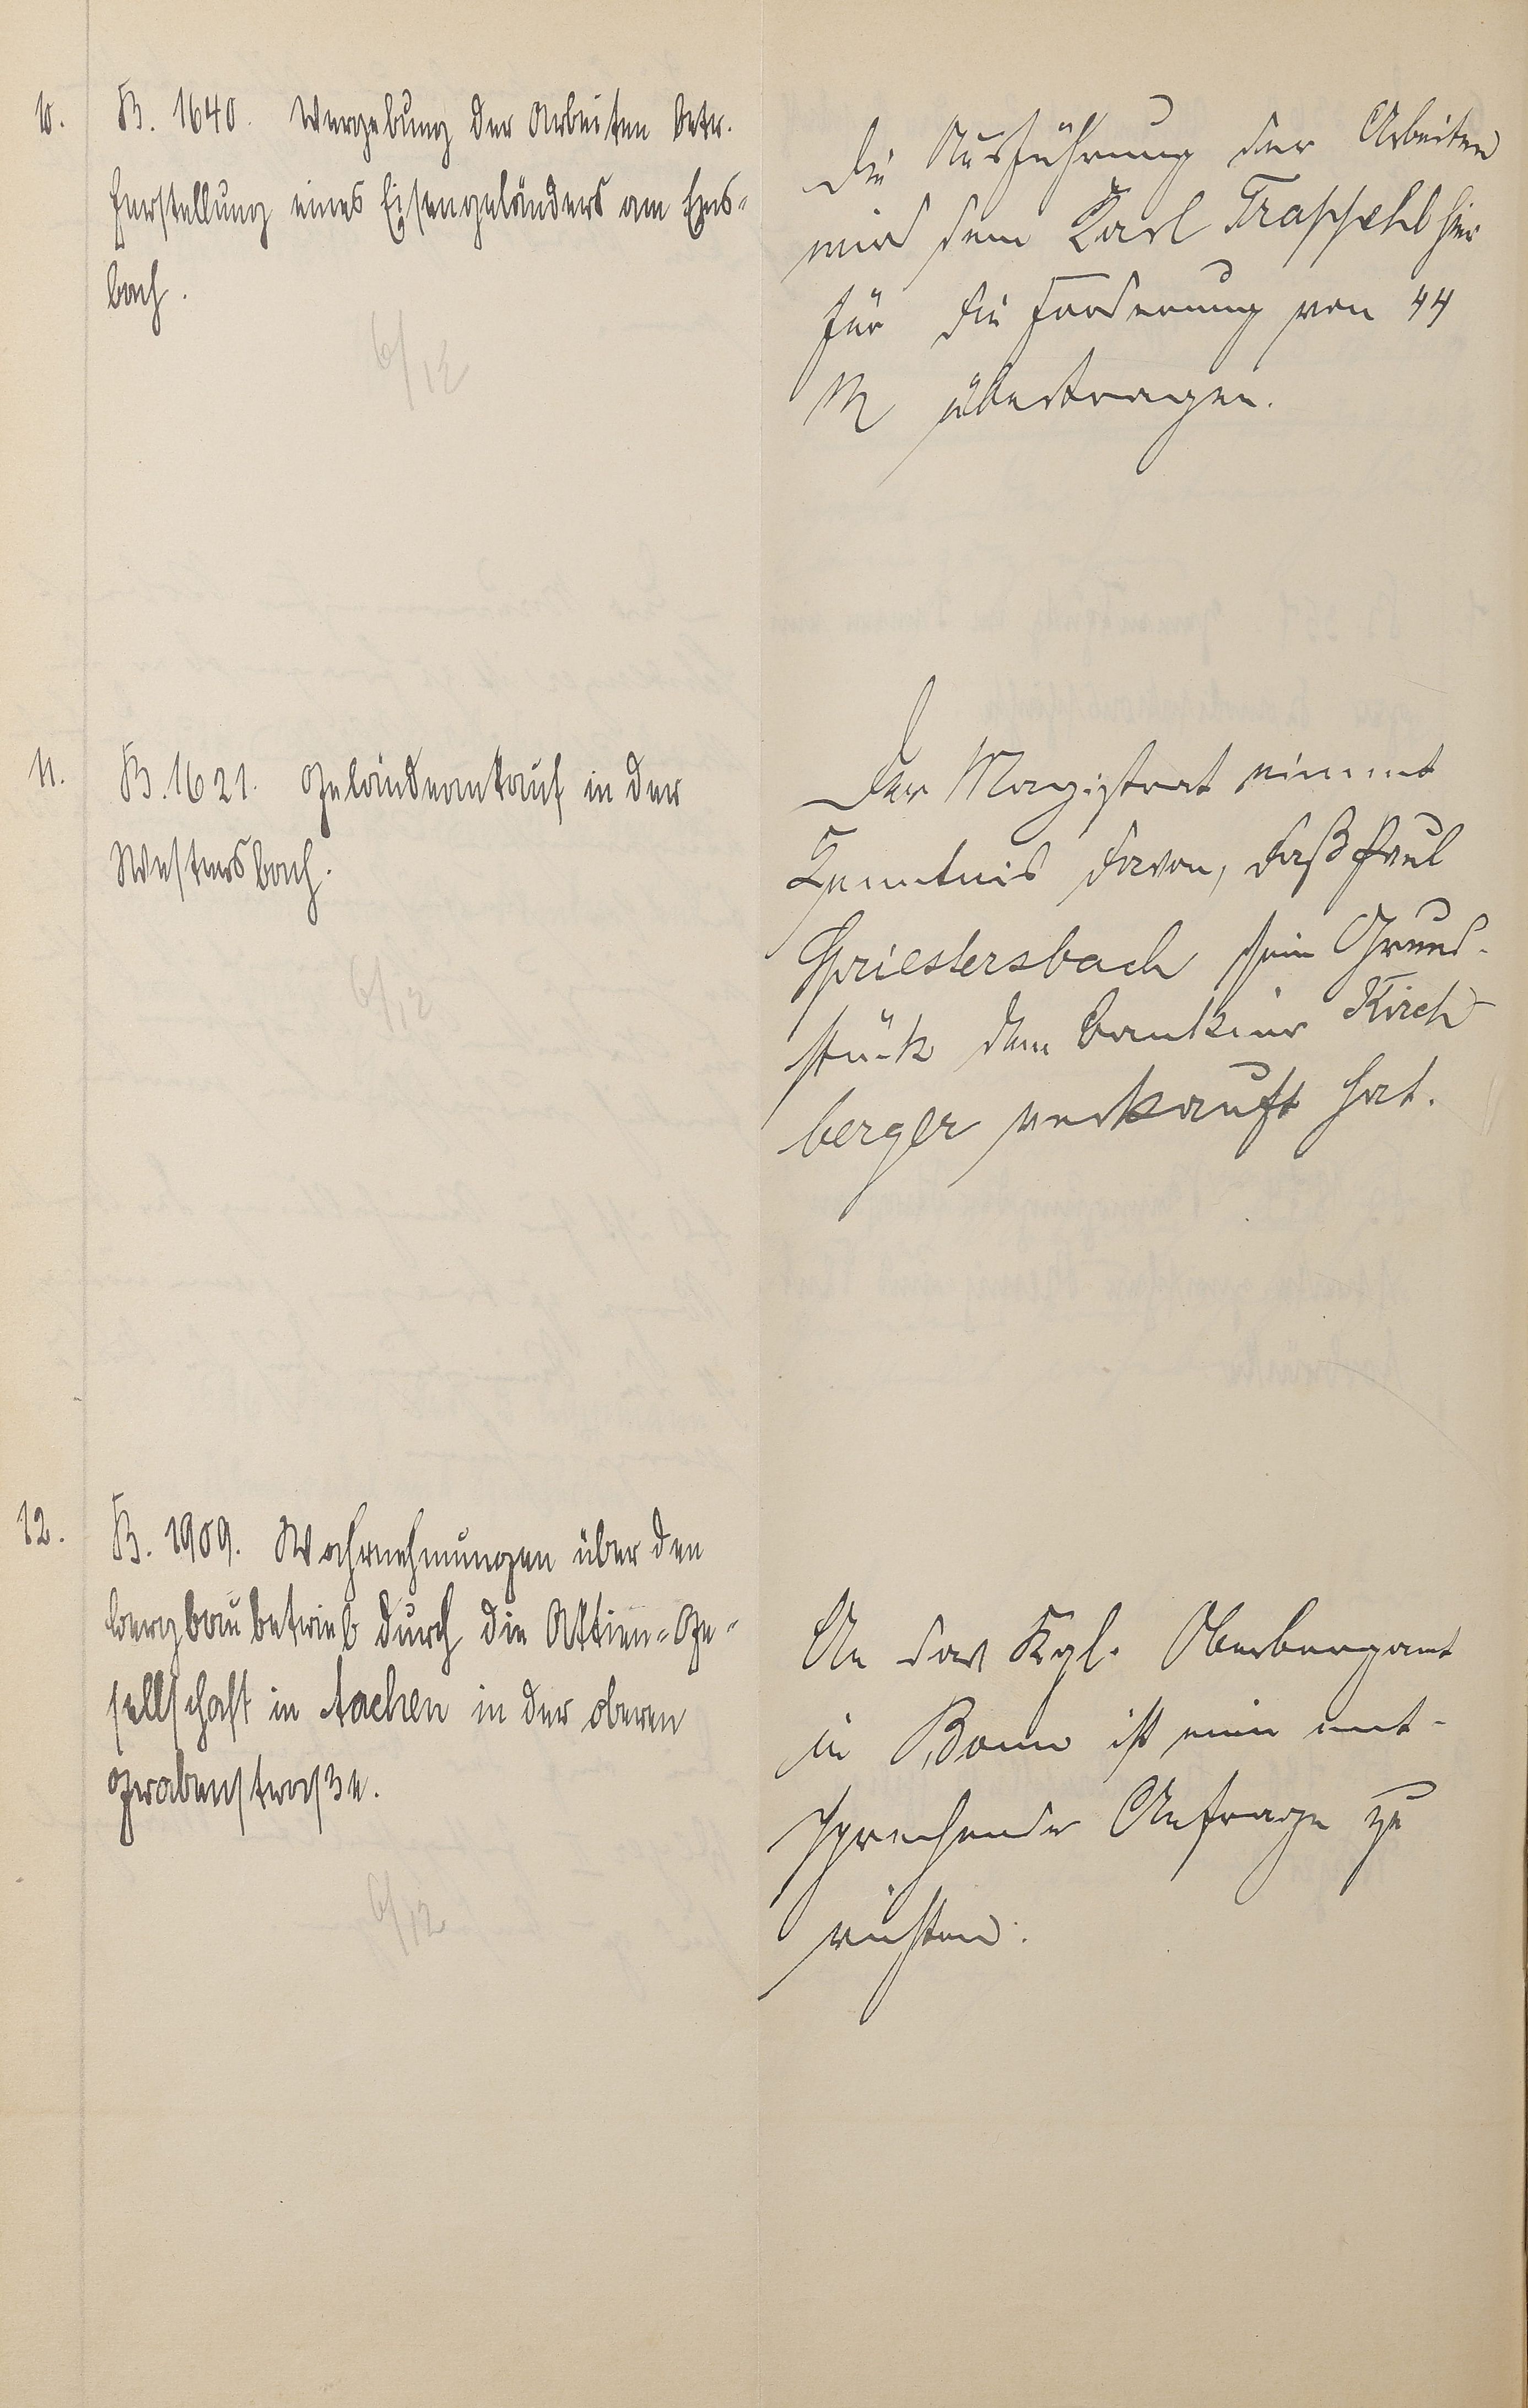 10.
B. 1640. Vergebung der Arbeiten betr.
Herstellung eines Eisengeländers am Ems-
bach.
6/12
Die Ausführung der Arbeiten
wird dem Karl Trappehl hier
für die Forderung von 44
M übertragen.
11.
B. 1621. Geländeankauf in der
Westersbach.
6/12
Der Magistrat nimmt
Kenntnis davon, daß Paul
Griestersbach sein Grund-
stück dem Bankier Kirch
berger verkauft hat.
12.
B. 1909. Wahrnehmungen über den
Bergbaubetrieb durch die Aktien-Ge-
sellschaft in Aachen in der oberen
Grabenstraße.
6/12
An das Kgl. Oberbergamt
in Bonn ist eine ent-
sprechende Anfrage zu
richten.